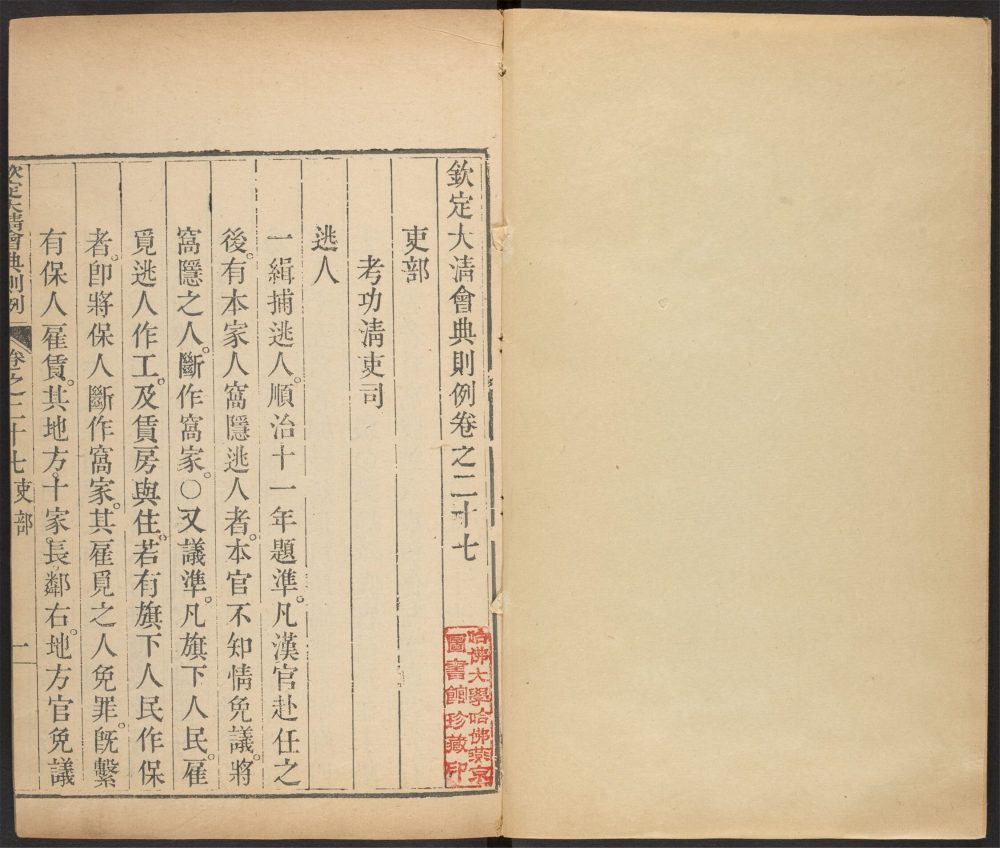 欽定大清會典則例卷之二十七
吏部
考功清吏司
逃人
一緝捕逃人。順治十一年題準。凡漢官赴任之
後。有本家人窩隱逃人者。本官不知情免議。將
窩隱之人。斷作窩家。○又議準。凡旗下人民。雇
覓逃人作工。及賃房與住。若有旗下人民作保
者。卽將保人斷作窩家。其雇覓之人免罪。旣繫
有保人雇賃。其地方。十家。長鄰右。地方官免議
欽定大清會典則例
卷之二十七吏部
一
哈佛大學哈佛燕京
圖書館珍藏印